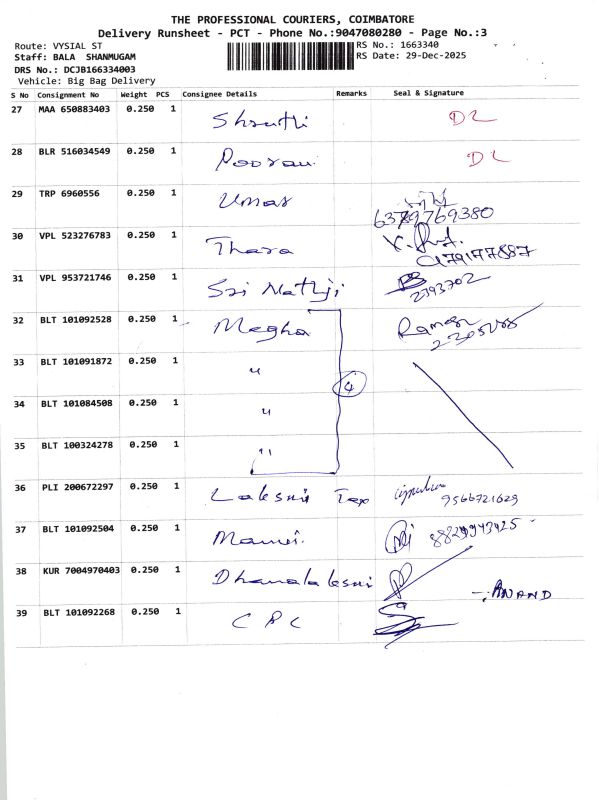 THE PROFESSIONAL COURIERS, COIMBATORE
Delivery Runsheet - PCT - Phone No.:9047080280 - Page No.:3
Route: VYSIAL ST
Staff: BALA SHANMUGAM
DRS No.: DCJB166334003
Vehicle: Big Bag Delivery
RS No.: 1663340
RS Date: 29-Dec-2025
S No Consignment No Weight PCS Consignee Details Remarks Seal & Signature
27 MAA 650883403 0.250 1 Shruthi DL
28 BLR 516034549 0.250 1 DL
29 TRP 6960556 0.250 1 Umar
30 VPL 523276783 0.250 1 Thara
31 VPL 953721746 0.250 1 Sri Nathji 2393702
32 BLT 101092528 0.250 1 Megha
33 BLT 101091872 0.250 1 "
4
34 BLT 101084508 0.250 1 "
35 BLT 100324278 0.250 1 "
36 PLI 200672297 0.250 1 9566721629
37 BLT 101092504 0.250 1
38 KUR 7004970403 0.250 1 ANAND
39 BLT 101092268 0.250 1 CPC